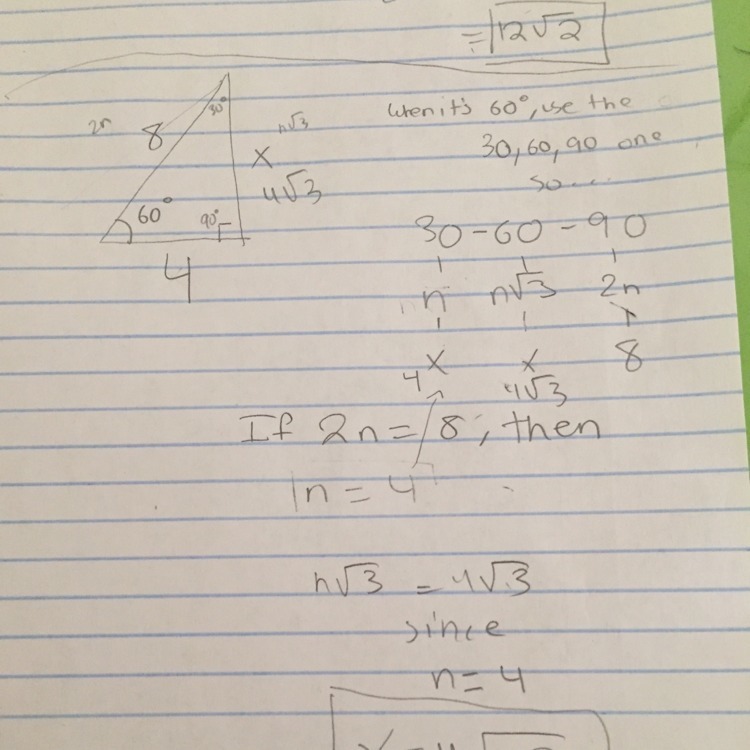 = 12√2
2n
8
30°
n√3
x
4√3
60°
90°
4
When it's 60°, use the
30, 60, 90 one
so...
30 - 60 - 90
n n√3 2n
4 x x 8
4√3
If 2n = 8, then
1n = 4
n√3 = 4√3
since
n = 4